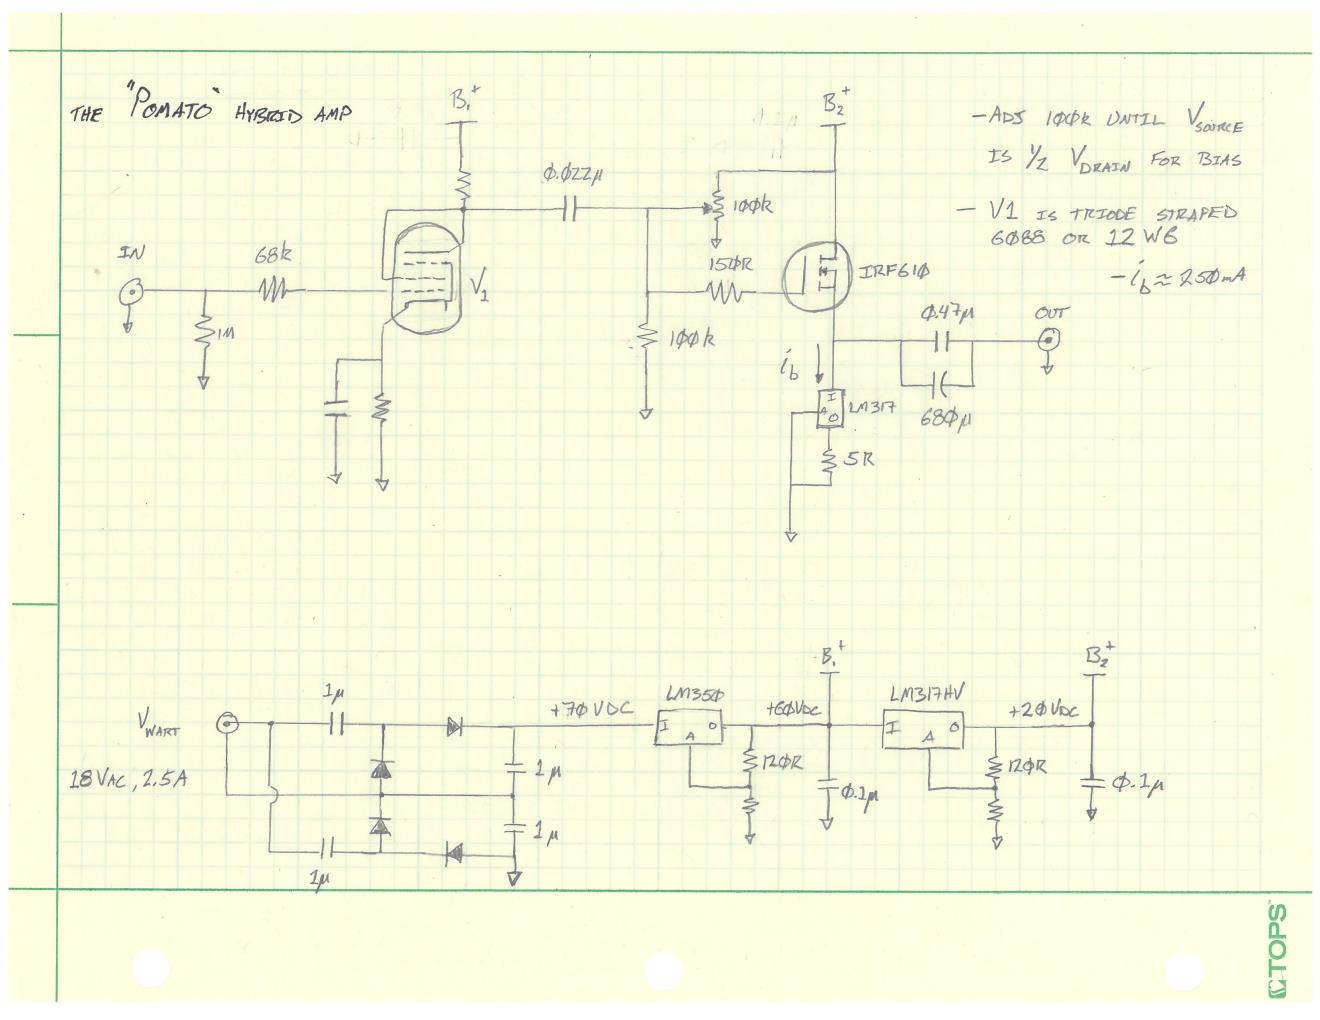 THE "POMATO" HYBRID AMP
B₁⁺
B₂⁺
- ADJ 100K UNTIL V SOURCE
IS 1/2 V DRAIN FOR BIAS
- V1 IS TRIODE STRAPED
6088 OR 12W6
- ib ≈ 250mA
0.022µ
100k
IN
68k
V₁
150R
IRF610
1M
100k
0.47µ
OUT
ib
680µ
I
A
O
LM317
5R
B₁⁺
B₂⁺
1µ
LM350
LM317HV
V WART
+70VDC
I
O
A
+60VDC
I
O
A
+20VDC
18VAC, 2.5A
1µ
120R
0.1µ
120R
0.1µ
1µ
1µ
TOPS